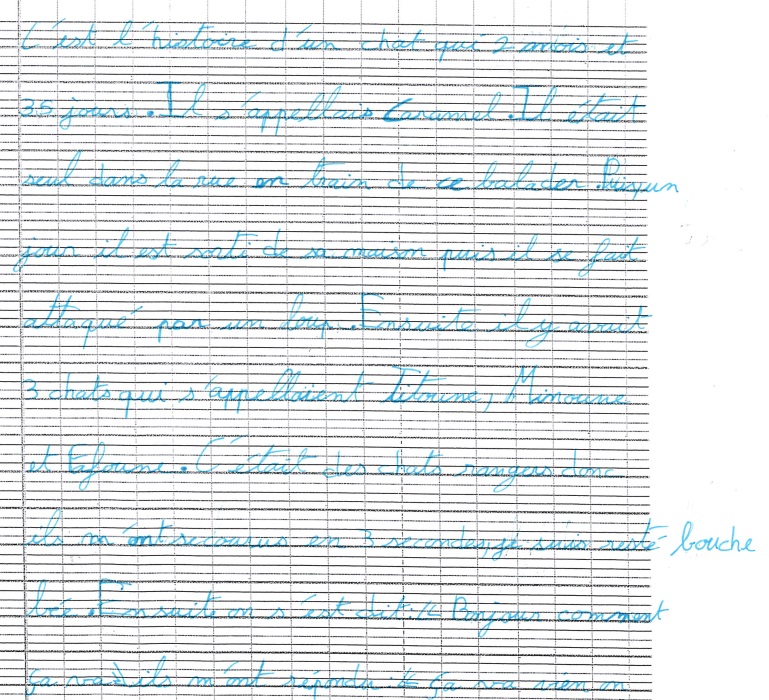 C'est l'histoire d'un chat qui 2 mois et
35 jours. Il s'appellais Caramel. Il était
seul dans la rue en train de ce balader. Puis un
jour il est sorti de sa maison puis il se fait
attaqué par un loup. Ensuite il y avait
3 chats qui s'appellaient Titoune, Minoune
et Fafoune. C'était des chats rangers donc
ils m'ont secourus en 3 secondes, je suis resté bouche
bée. Ensuite on s'est dit : « Bonjour comment
ça va » ils m'ont répondu « ça va bien on